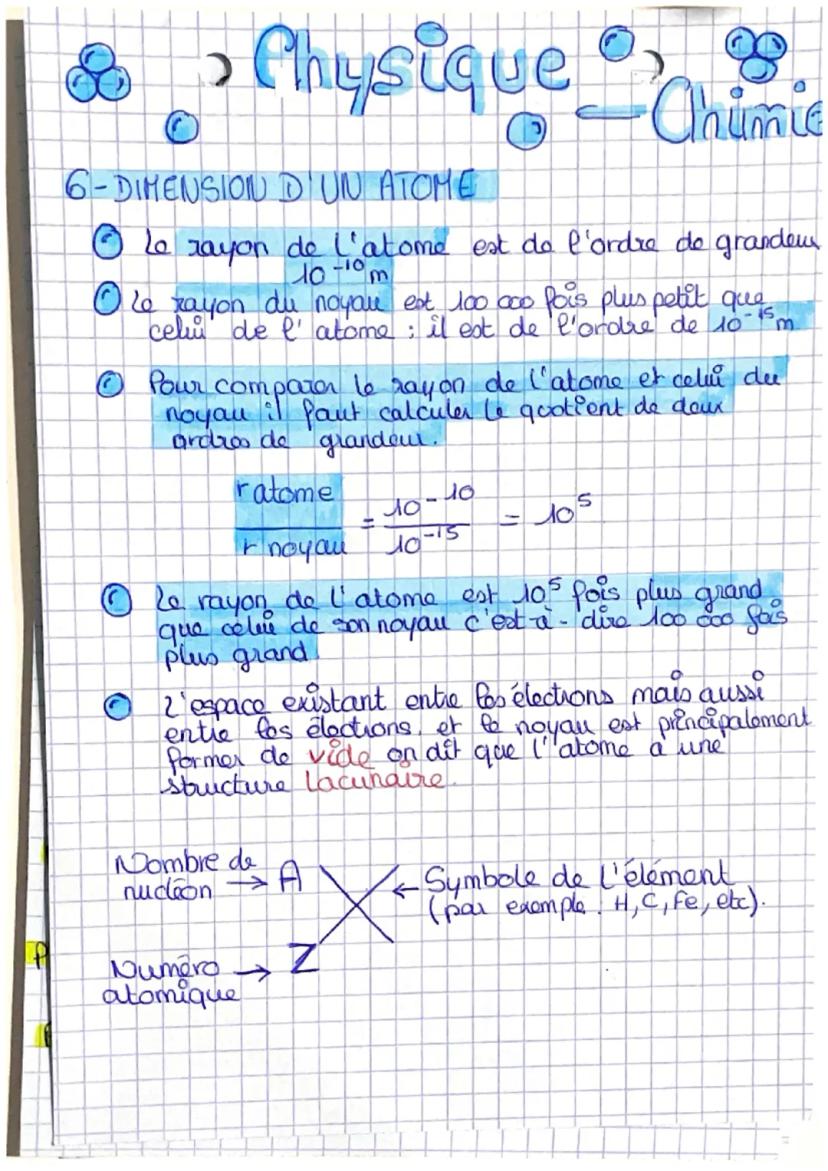 Physique
- Chimie
6-DIMENSION D'UN ATOME
Le rayon de l'atome est de l'ordre de grandeur
10⁻¹⁰m
Le rayon du noyau est 100 000 fois plus petit que
celui de l'atome ; il est de l'ordre de 10⁻¹⁵m
Pour comparer le rayon de l'atome et celui du
noyau il faut calculer le quotient de deux
ordres de grandeur.
r atome
r noyau
= 10⁻¹⁰
10⁻¹⁵
= 10⁵
Le rayon de l'atome est 10⁵ fois plus grand
que celui de son noyau c'est-à-dire 100 000 fois
plus grand
L'espace existant entre les électrons mais aussi
entre les électrons, et le noyau est principalement
former de vide on dit que l'atome a une
structure lacunaire.
Nombre de
nucléon → A
X
← Symbole de l'élément
(par exemple : H, C, Fe, etc).
Numéro → Z
atomique